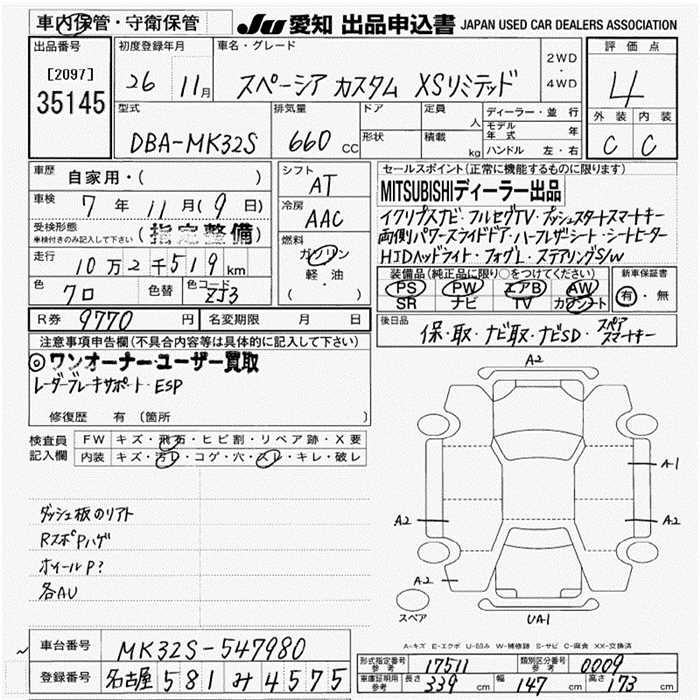 車内保管・守衛保管 JU 愛知 出品申込書 JAPAN USED CAR DEALERS ASSOCIATION
出品番号 初度登録年月 車名・グレード 2WD ・ 4WD 評価点
[2097] 35145 26 11月 スペーシア カスタム XSリミテッド 4
型式 排気量 ドア 定員 人 ディーラー・並行 外装 内装
DBA-MK32S 660 CC 形状 積載 kg モデル年式 年 C C
ハンドル 左・右
車歴 自家用・( ) シフト AT セールスポイント(正常に機能するものに限ります)
車検 7年 11月(9日) 冷房 AAC MITSUBISHIディーラー出品
受検形態 車検付きのみ記入して下さい (指定整備) 燃料 ガソリン 軽油 ( ・ )
イクリプスナビ・フルセグTV・プッシュスタートスマートキー
両側パワースライドドア・ハーフレザーシート・シートヒーター
HIDヘッドライト・フォグL・ステアリングS/W
走行 10万2千519km 装備品(純正品に限り○をつけてください) 新車保証書
色 クロ 色替 色コード ZJ3 PS PW エアB AW 有・無
SR ナビ TV カワシート
R券 9770円 名変期限 月 日 後日品 保・取・ナビ取・ナビSD・スペアスマートキー
注意事項申告欄(不具合内容等は具体的に記入して下さい)
◎ワンオーナー・ユーザー買取
レーダーブレーキサポート・ESP
修復歴 有(箇所 )
検査員記入欄 FW キズ・飛石・ヒビ割・リペア跡・X要
内装 キズ・汚レ・コゲ・穴・スレ・キレ・破レ
ダッシュ板のリアト
RスポPハゲ
ホイールP?
各AU
A2
A-1
A2 A2
A2
スペア UA1
A-キズ E-エクボ U-凹み W-補修跡 S-サビ C-腐食 XX-交換済
車台番号 MK32S-547980
登録番号 名古屋 581 み 4575
形式指定番号 参考 17511 類別区分番号 参考 0009
車庫証明用 参考 長さ 339cm 幅 147cm 高さ 173cm